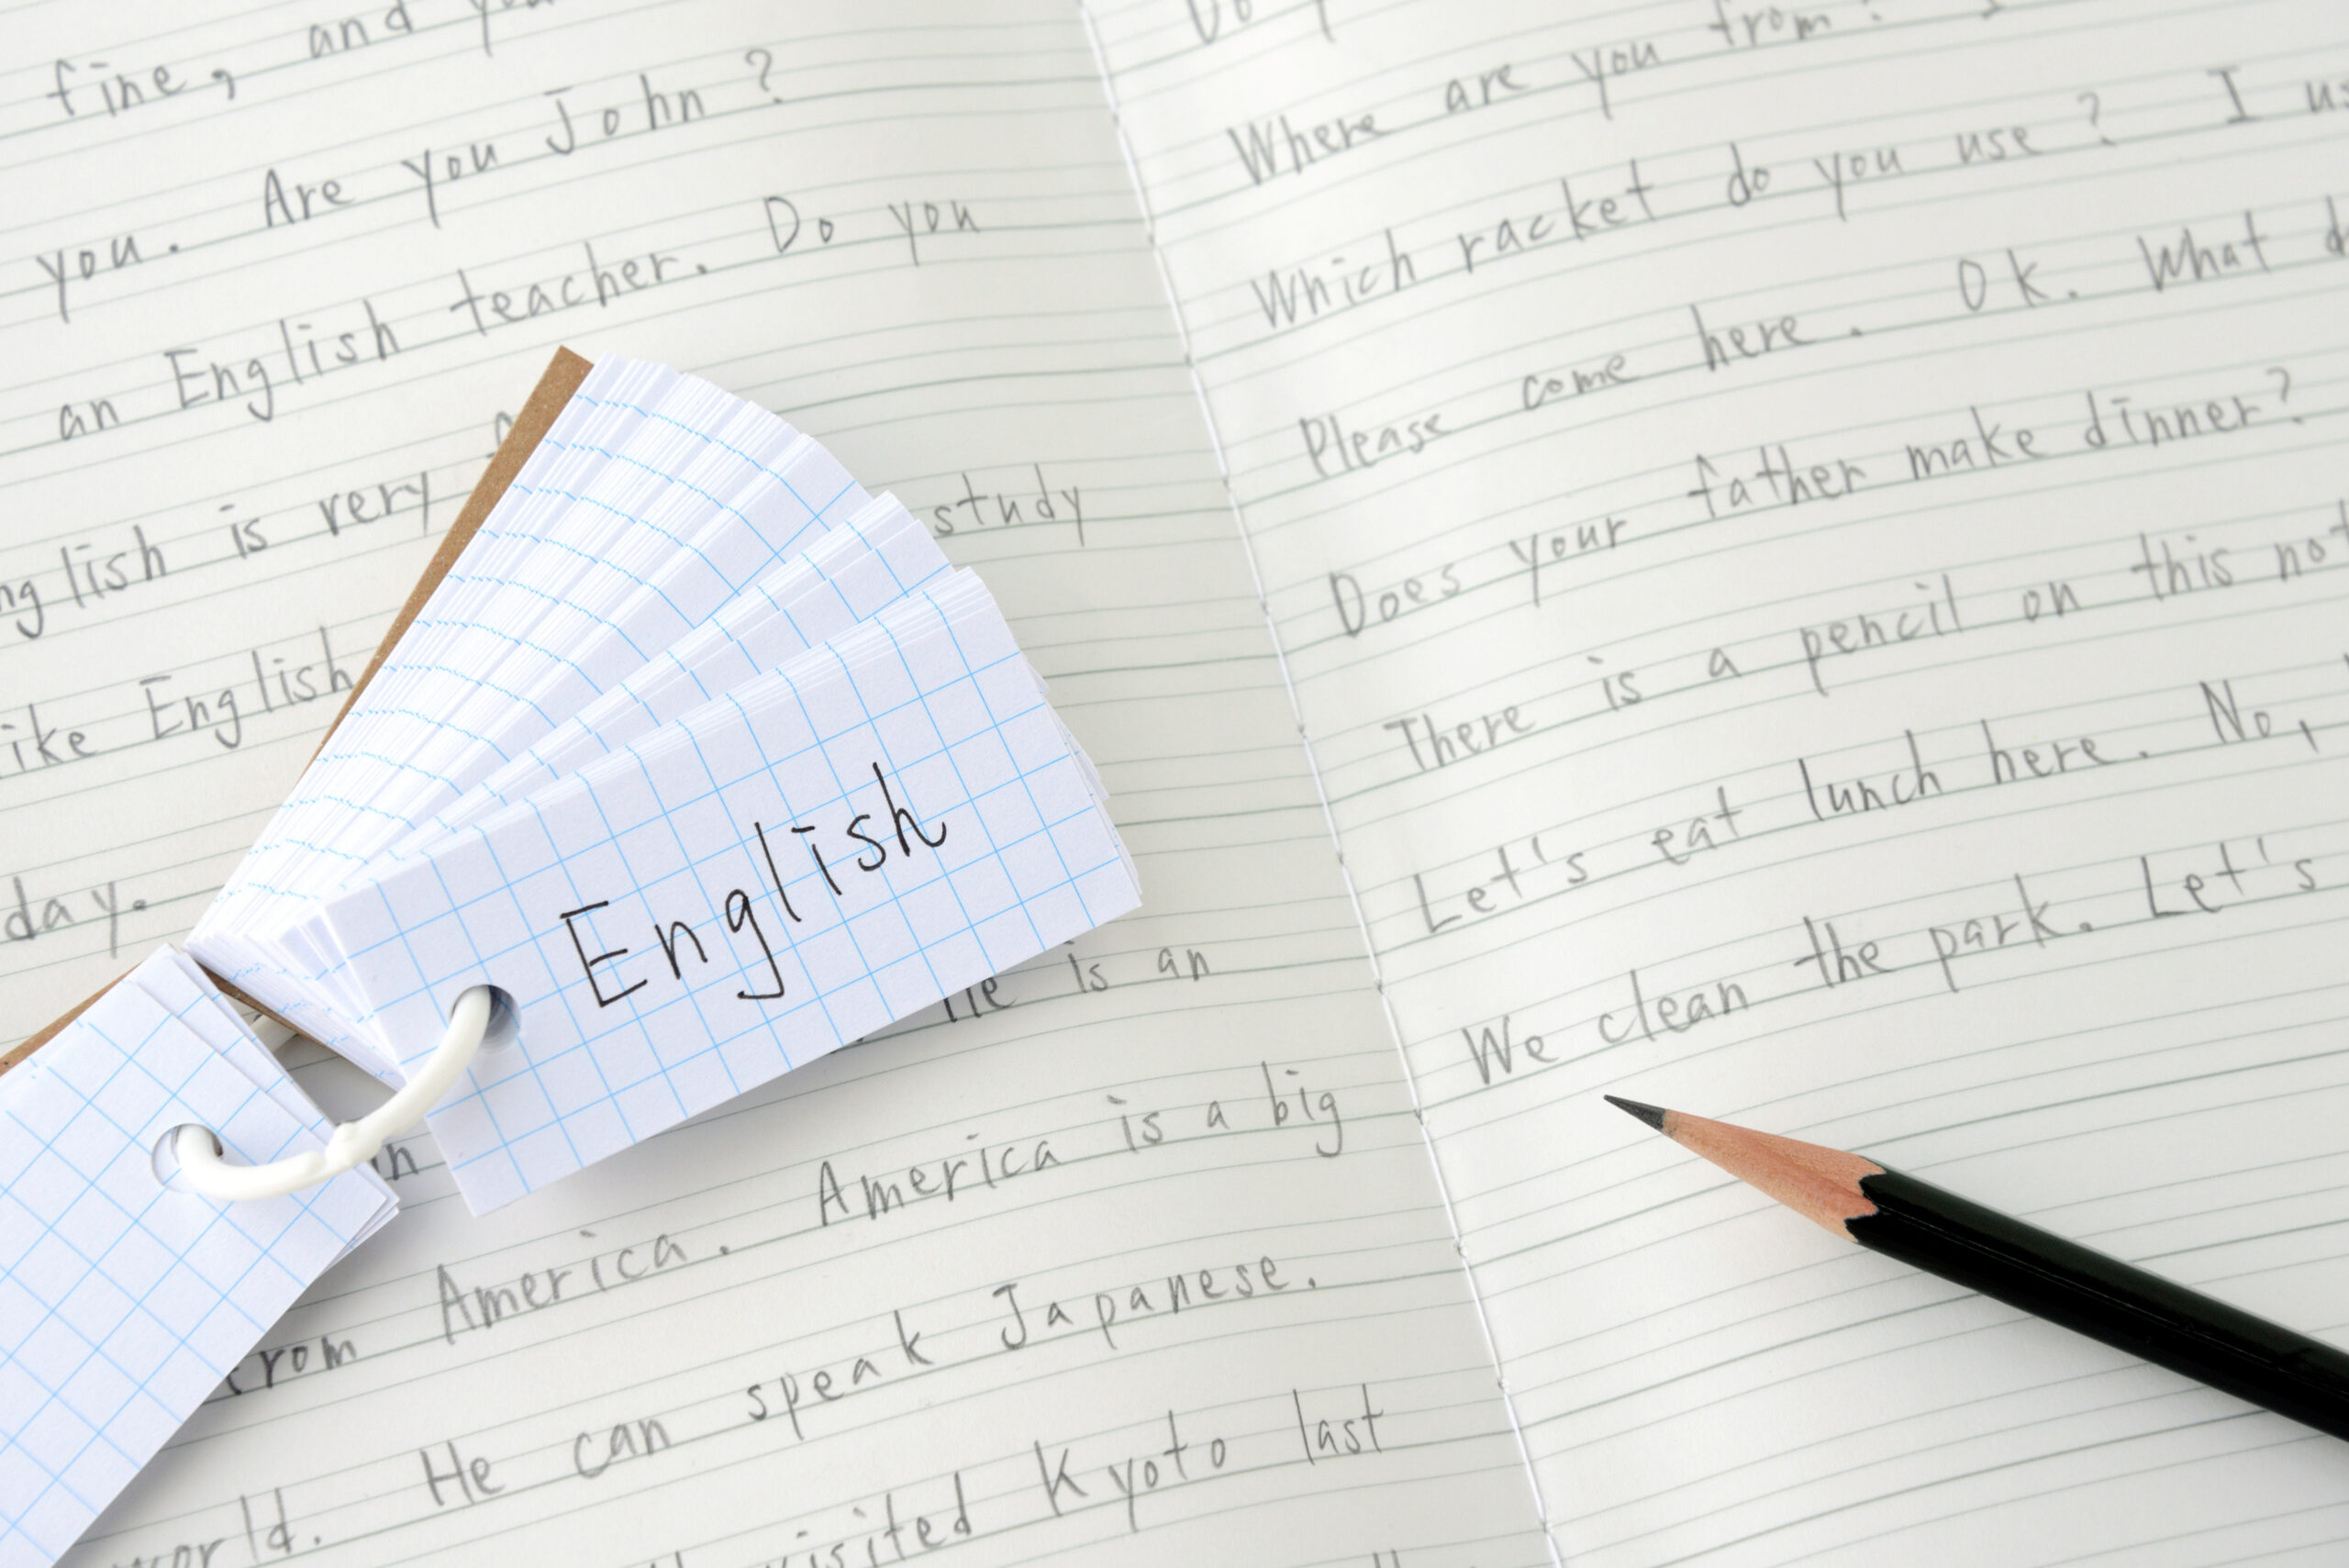 fine, and
you. Are you John?
an English teacher. Do you
is very
study
like English
day.
is an
America is a big
from America.
He can speak Japanese.
world.
visited Kyoto last
English
Where are you from?
Which racket do you use? I
Please come here. OK. What
Does your father make dinner?
There is a pencil on this
Let's eat lunch here. No,
We clean the park. Let's